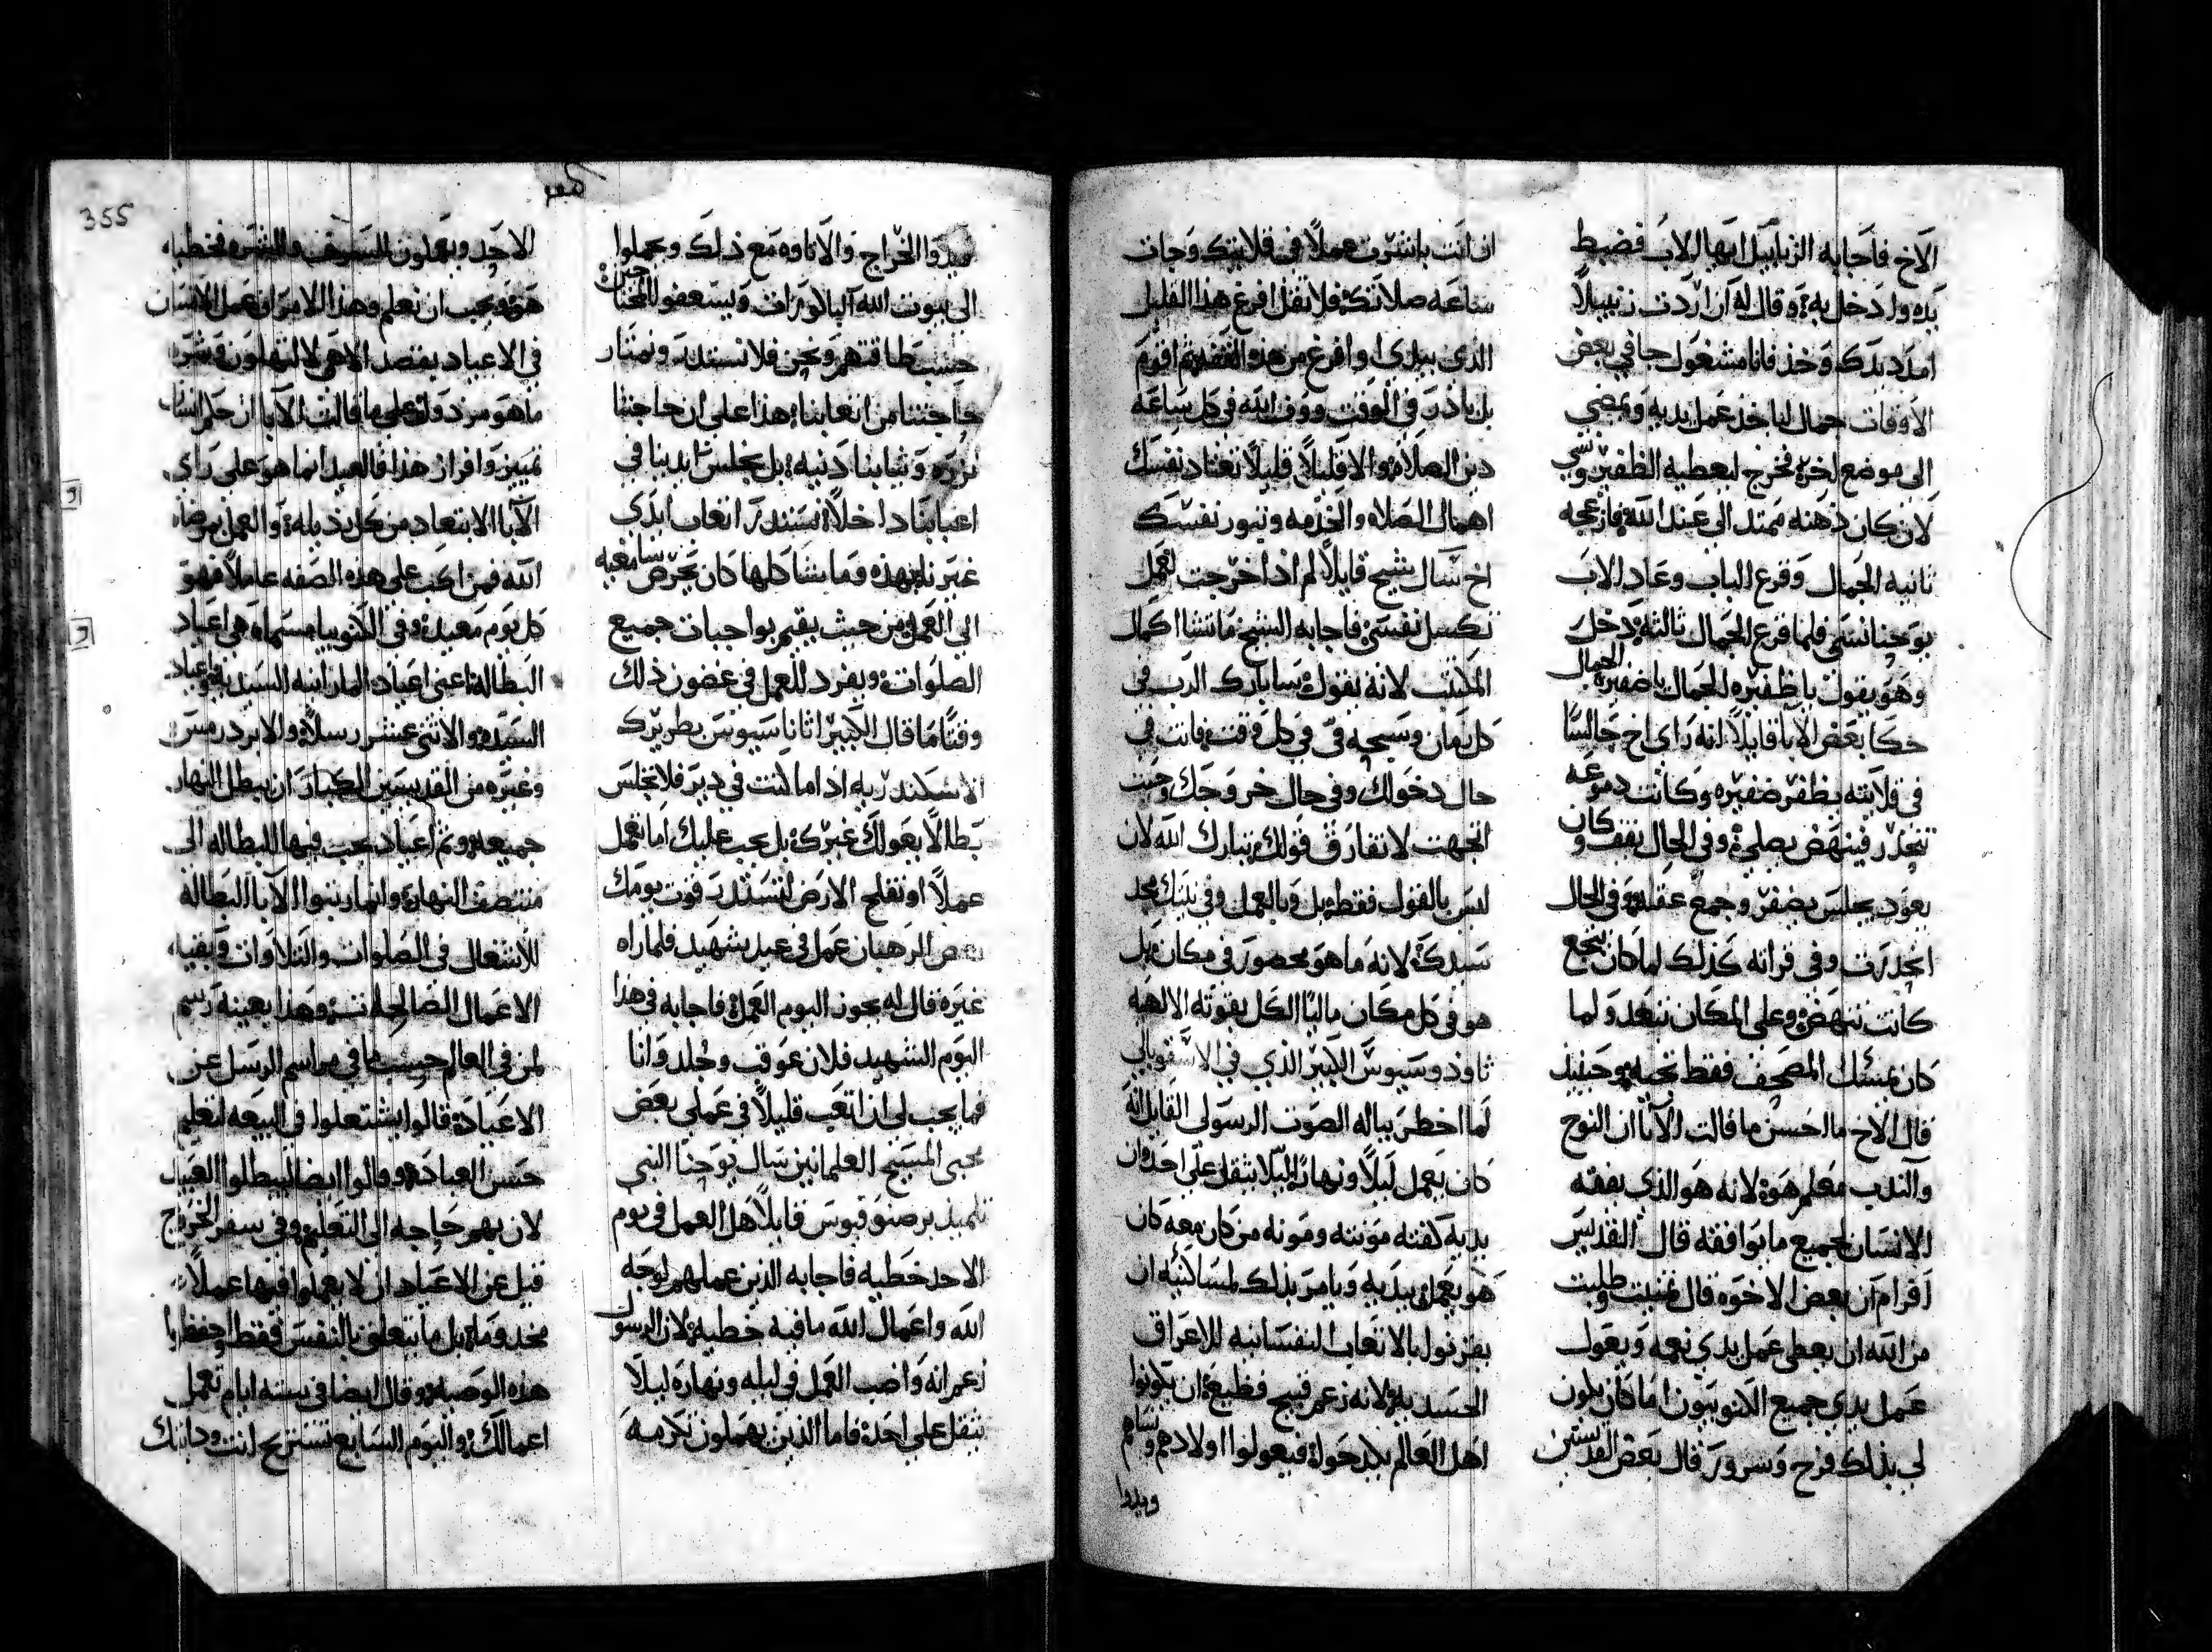 الاخ فاجابه الزنابيل ايها الاب فضبط
يده وادخل به وقال له ان اردت زنبيلاً
امدد يدك وخذ فانا مشغول جا في بعض
الاوقات جمال لياخذ عمل يديه ويمضي
الى موضع اخر فخرج ليعطيه الظفير ونسي
لان كان ذهنه ممتد الى عند الله فازعجه
ثانيه الجمال وقرع الباب وعاد الاب
يوحنا نسي فلما قرع الجمال ثالثه دخل
وهو يقول يا ظفيره الجمال يا ضفيره الجمال
حكا بعض الابا قايلاً انه راى اخ جالساً
في قلايته يظفر ضفيره وكانت دموعه
تنحدر فينهض يصلي وفي الحال يقف وكان
يعود يجلس يضفر وجمع عقله وفي الحال
انحدرت وفي قراته كذلك لما كان ينجع
كانت تنهض وعلى المكان تتبعد ولما
كان يمسك المصحف فقط تجيه وحينيذ
قال الاخ ما احسن ما قالت الابا ان النوح
والندب معلم هو لانه هو الذي يفقه
الانسان لجميع ما يوافقه قال القديس
افرام ان بعض الاخوه قال تمنيت وطلبت
من الله ان يعطي عمل يدي نعمه ويعول
عمل يدي جميع الكنوبيون اما كان يكون
لي بذلك فرح وسرور قال بعض القديسين
ان انت باشرت عملاً في قلايتك وجات
ساعه صلاتك فلا تقل افرغ هذا القليل
الذي بيدي او افرغ من هذه القفه ثم اقوم
بل بادر في الوقت ووف الله في كل ساعه
دين الصلاه والا قليلاً قليلاً تعتاد نفسك
اهمال الصلاه والخدمه وتبور نفسك
اخ سال شيخ قايلاً لم اذا خرجت لعمل
تكسل نفسي فاجابه الشيخ ما تشا اكمال
المكتب لانه يقول سابارك الرب في
كل زمان وتسبحه في في كل وقت فانت في
حال دخولك وفي حال خروجك وحيث
اتجهت لا تفارق قولك تبارك الله لان
ليس بالقول فقط بل وبالعمل وفي نيتك مجد
سيدك لانه ما هو محصور في مكان بل
هو في كل مكان مالياً الكل بقوته الالهيه
ثاودوسيوس الكبير الذي في الاسقوبلي
لما اخطر بباله الصوت الرسولي القايل انه
كان يعمل ليلاً ونهاراً ليلا يثقل على احد وان
يديه كفته مونته ومونه من كان معه كان
هو يعمل بيديه ويامر بذلك لمساكنيه ان
يقرنوا بالاتعاب النفسانيه للاعراق
الجسديه لانه زعم قبيح فظيع ان يكونوا
اهل العالم يكدحوا فيعولوا اولادهم ونساهم
ويدوا
ويدوا الخراج والاتاوه مع ذلك ويحملوا
الى بيوت الله البالورات ويسعفوا المحتاجين
حسب طاقتهم ونحن فلا نستدر ونمتار
حاجتنا من اتعابنا هذا على ان حاجتنا
نزره وثيابنا دنيه بل نجلس ايدينا في
اعبابنا داخلاً نستدر اتعاب ايدي
غيرنا بهذه وما يشاكلها كان يحرض سامعيه
الى العمل من حيث يقيم بواجبات جميع
الصلوات ويفرد للعمل في غضون ذلك
وقتاً ما قال الكبير اثاناسيوس بطريرك
الاسكندريه اذا ما كنت في دير فلا تجلس
بطالاً يعولك غيرك بل يجب عليك اما تعمل
عملاً او تفلح الارض لتستدر قوت يومك
بعض الرهبان عمل في عيد شهيد فلما راه
غيره قال له يجوز اليوم العمل فاجابه في هذا
اليوم الشهيد فلان عوقب وجلد وانا
فما يجب لي ان اتعب قليلاً في عملي بعض
محبي المسيح العلمانيين سال يوحنا النبي
تلميذ برصنوقيوس قايلاً هل العمل في يوم
الاحد خطيه فاجابه الذين عملهم لوجه
الله واعمال الله ما فيه خطيه لان الرسول
زعم انه واضب العمل في ليله ونهاره ليلا
يثقل على احد فاما الذين يعملون تكرمه
الاحد ويعملون للتسويف والشره فخطيه
هو ويجب ان نعلم وهذا الامر ان عمل الانسان
في الاعياد بقصد الاهي لا لتهاون وشره
ما هو مرذول على ما قالت الابا ان حل السبات
تمييز وافراز هذا فالعيد انما هو على راى
الابا الابتعاد من كل رذيله والعمل بمرضاه
الله فمن اكب على هذه الصفه عاملاً فهو
كل يوم معيد وفي الكنوبيا مسماه هي اعياد
البطاله اعني اعياد المارانيه السيديه واعياد
السيده والاثني عشر رسلاً والابردرمس
وغيره من القديسين الكبار ان يبطل النهار
جميعه وثم اعياد يجب فيها للبطاله الى
منتصف النهار وانما رتبوا الابا البطاله
للاشتغال في الصلوات والتلاوات وبقيه
الاعمال الصالحه وهذا بعينه رسم
لمن في العالم حسب ما في مراسم الرسل عن
الاعياد قالوا يشتعلوا في البيعه لتعليم
حسن العباده وقالوا ايضا ليبطلوا العبيد
لان بهم حاجه الى التعليم وفي سفر الخروج
قيل عن الاعياد ان لا يعملوا فيها عملاً
مخدوماً بل ما يتعلق بالنفس فقط احفظ يا
هذه الوصيه وقال ايضا في سته ايام تعمل
اعمالك واليوم السابع تستريح انت ودابتك
355